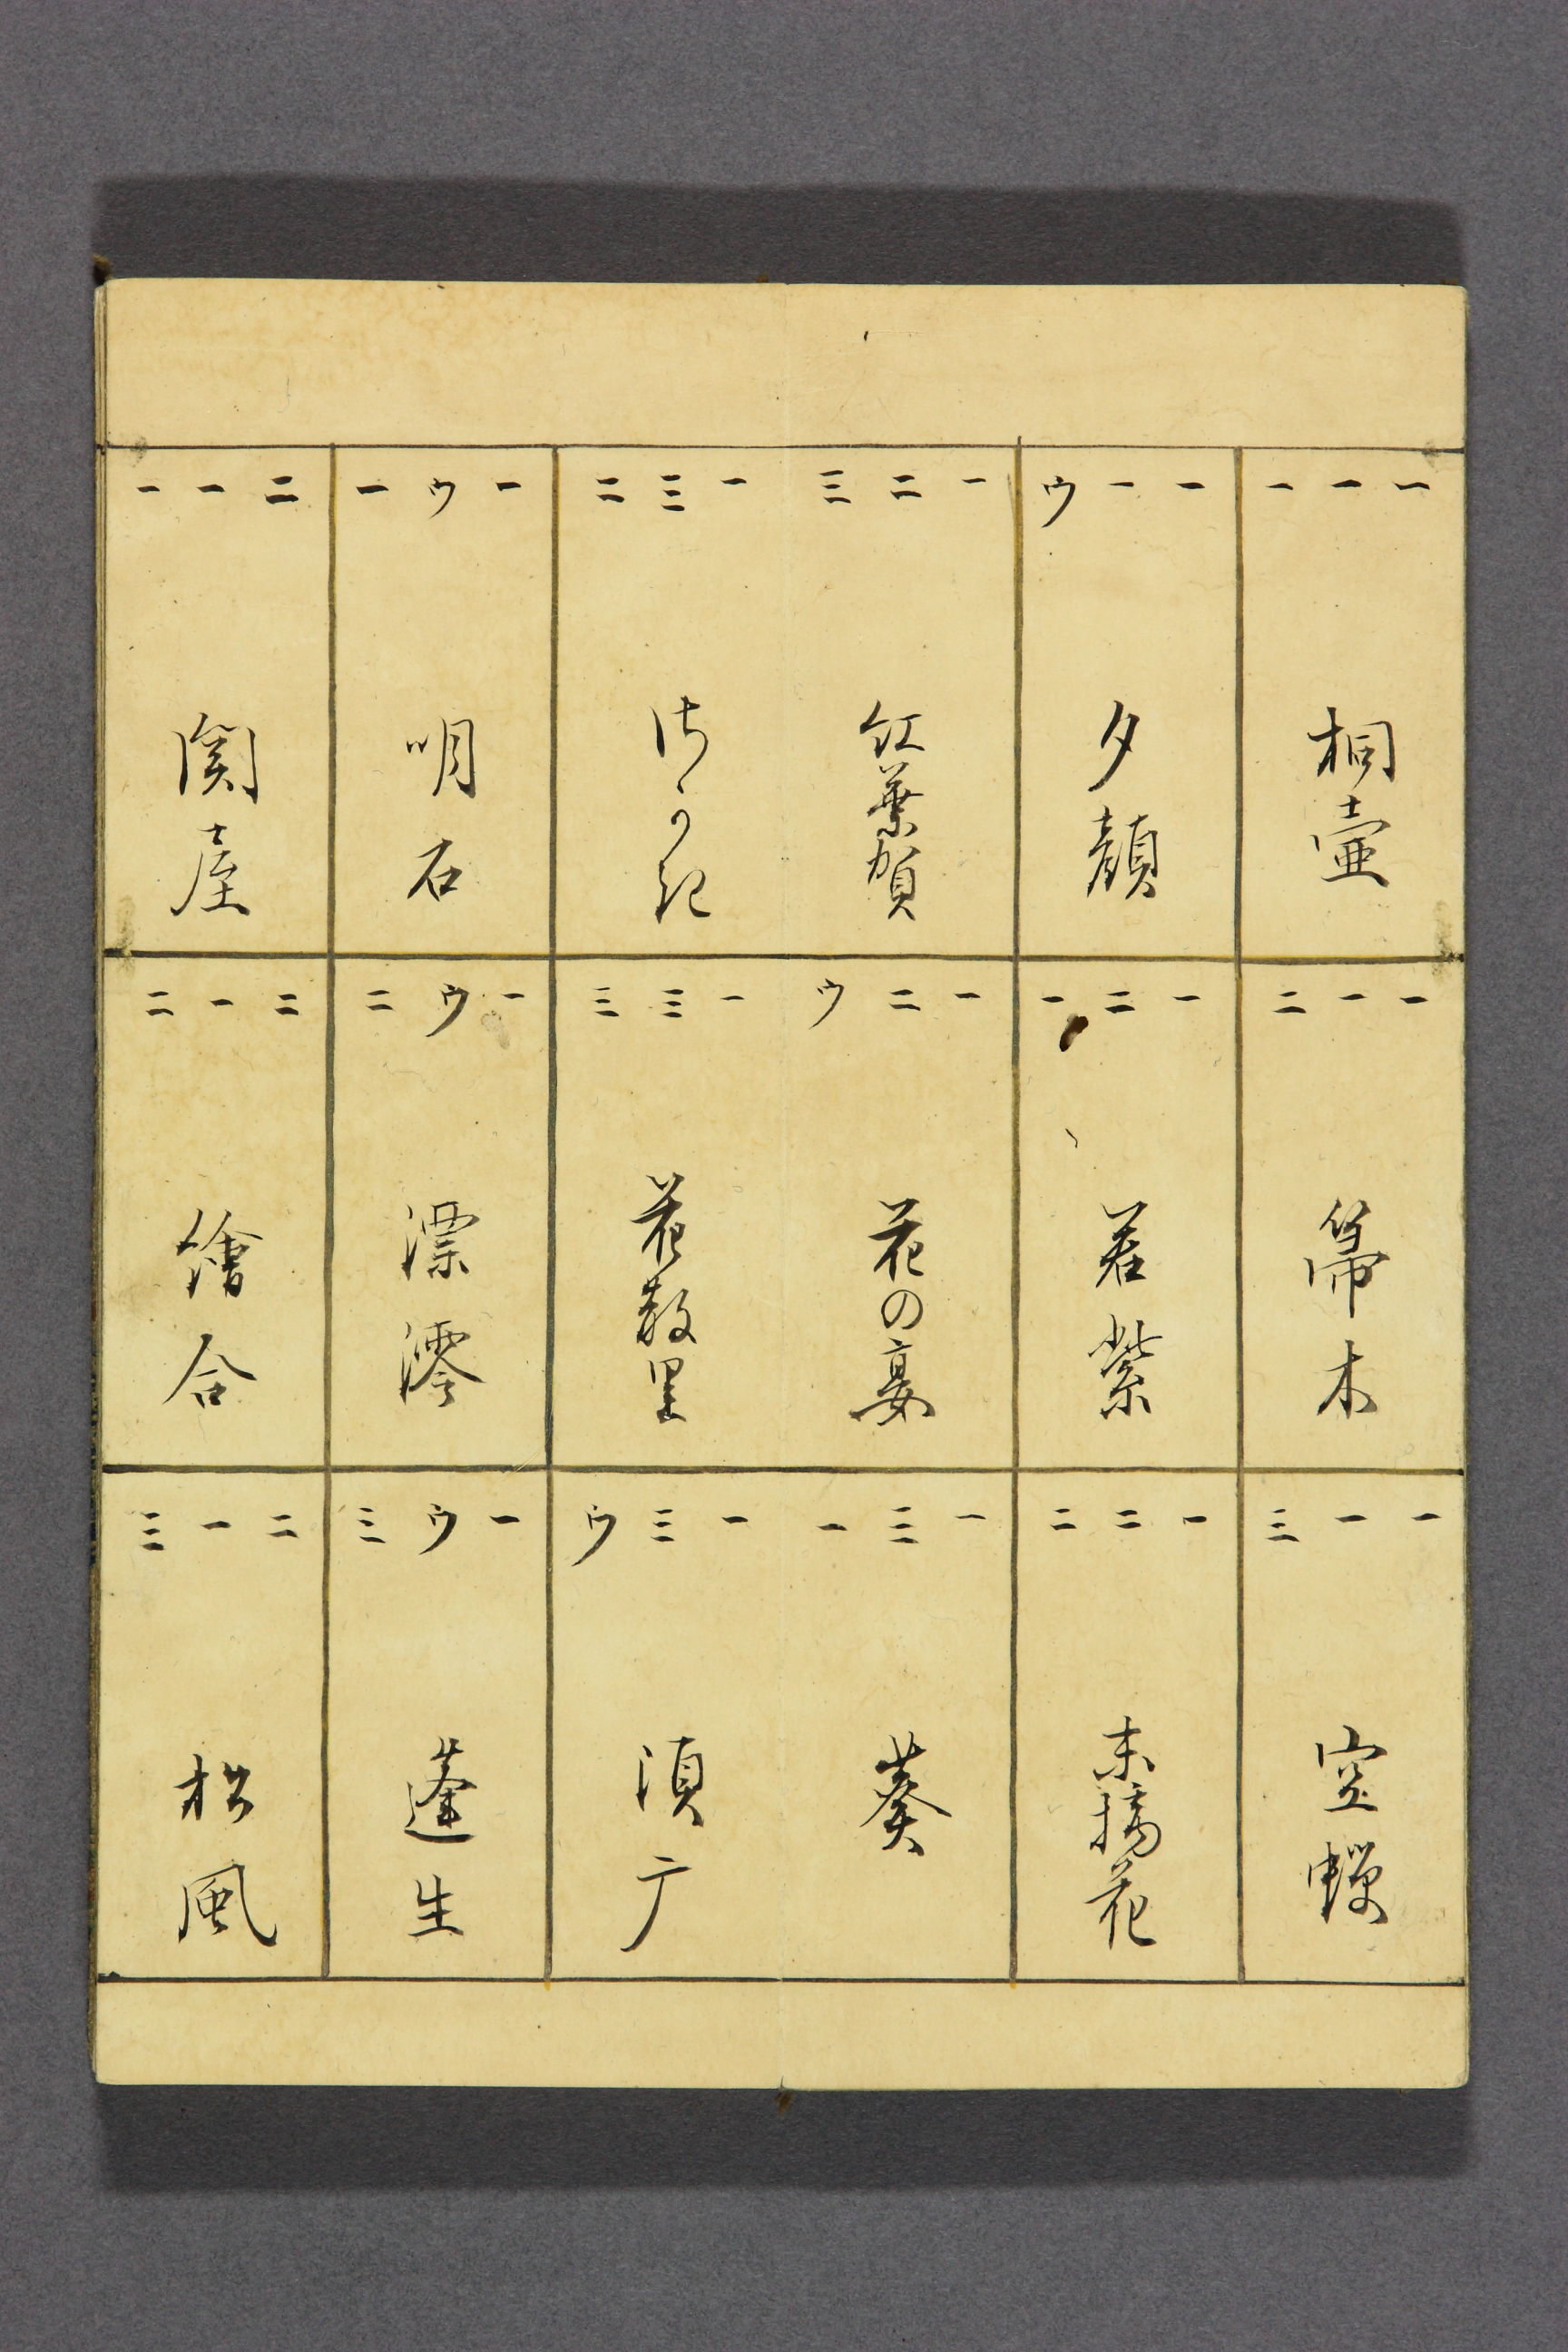 一一一
桐壷
一一二
箒木
一一三
空蝉
一一ウ
夕顔
一二一
若紫
一二二
末摘花
一二三
紅葉賀
一二ウ
花の宴
一三一
葵
一三二
さかき
一三三
花散里
一三ウ
須广
一ウ一
明石
一ウ二
漂澪
一ウ三
蓬生
二一一
関屋
二一二
繪合
二一三
松風